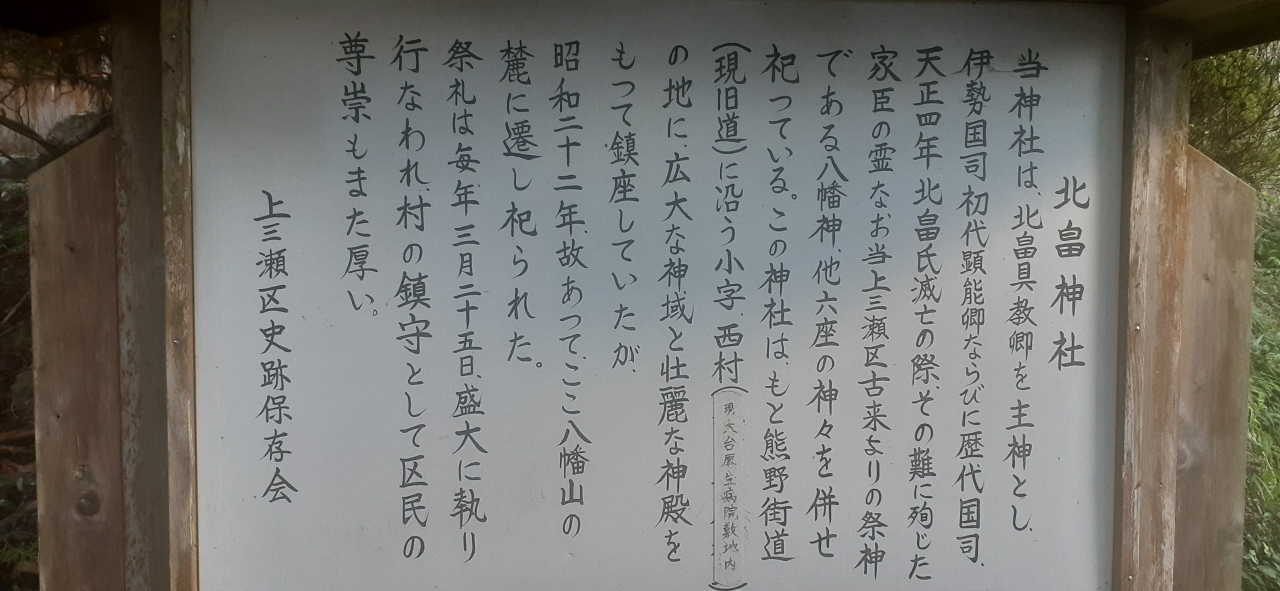 北畠神社
当神社は、北畠具教卿を主神とし、
伊勢国司初代顕能卿ならびに歴代国司、
天正四年北畠氏滅亡の際、その難に殉じた
家臣の霊なお当上三瀬区古来よりの祭神
である八幡神、他六座の神々を併せ
祀つている。この神社は、もと熊野街道
(現旧道)に沿う小字、西村(現大台厚生病院敷地内)
の地に、広大な神域と壮麗な神殿を
もつて鎮座していたが、
昭和二十二年、故あつて、ここ八幡山の
麓に遷し祀られた。
祭礼は毎年三月二十五日、盛大に執り
行なわれ、村の鎮守として区民の
尊崇もまた厚い。
上三瀬区史跡保存会